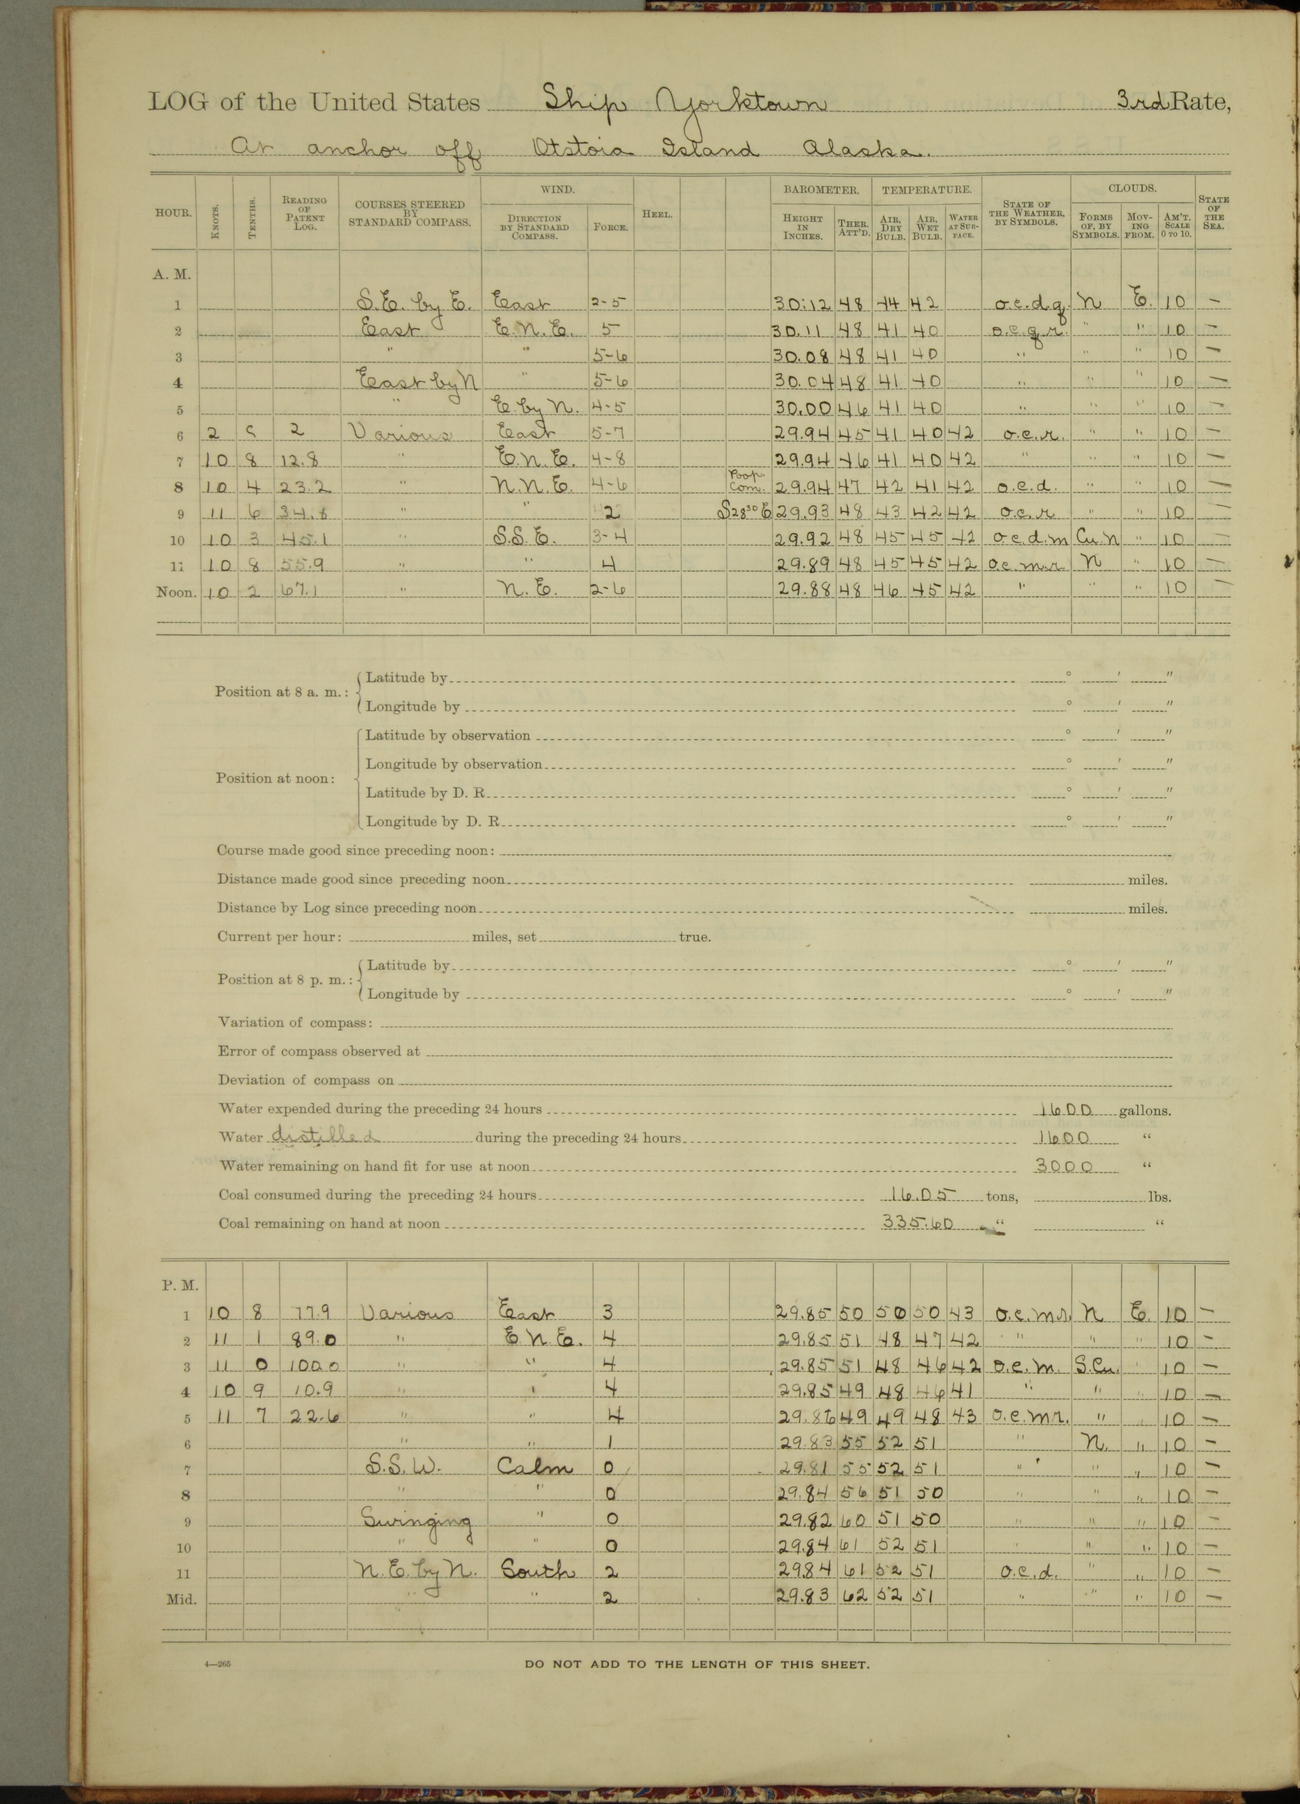 LOG of the United States Ship Yorktown 3rd Rate,
At anchor off Otstoia Island Alaska.
HOUR. KNOTS. TENTHS. READING OF PATENT LOG. COURSES STEERED BY STANDARD COMPASS. WIND. DIRECTION BY STANDARD COMPASS. FORCE. HEEL. BAROMETER. HEIGHT IN INCHES. THER. ATT'D. TEMPERATURE. AIR, DRY BULB. AIR, WET BULB. WATER AT SUR-FACE. STATE OF THE WEATHER, BY SYMBOLS. CLOUDS. FORMS OF, BY SYMBOLS. MOV-ING FROM. AM'T. SCALE 0 TO 10. STATE OF THE SEA.
A. M.
1 S.E. by E. East 2-5 30.12 48 44 42 o.c.d.q. N E. 10 –
2 East E.N.E. 5 30.11 48 41 40 o.c.q.r. " " 10 –
3 " " 5-6 30.08 48 41 40 " " " 10 –
4 East by N " 5-6 30.04 48 41 40 " " " 10 –
5 " E. by N. 4-5 30.00 46 41 40 " " " 10 –
6 2 2 Various East 5-7 29.94 45 41 40 42 o.c.r. " " 10 –
7 10 8 12.8 " E.N.E. 4-8 29.94 46 41 40 42 " " " 10 –
8 10 4 23.2 " N.N.E. 4-6 Poop Com. 29.94 47 42 41 42 o.c.d. " " 10 –
9 11 6 34.8 " " 2 S28°30'E 29.93 48 43 42 42 o.c.r " " 10 –
10 10 3 45.1 " S.S.E. 3-4 29.92 48 45 45 42 o.c.d.m Cu.N " 10 –
11 10 8 55.9 " " 4 29.89 48 45 45 42 o.c.m.r N " 10 –
Noon. 10 2 67.1 " N.E. 2-6 29.88 48 46 45 42 " " " 10 –
Position at 8 a. m.: Latitude by ° ' "
Longitude by ° ' "
Position at noon: Latitude by observation ° ' "
Longitude by observation ° ' "
Latitude by D. R. ° ' "
Longitude by D. R. ° ' "
Course made good since preceding noon:
Distance made good since preceding noon miles.
Distance by Log since preceding noon miles.
Current per hour: miles, set true.
Position at 8 p. m.: Latitude by ° ' "
Longitude by ° ' "
Variation of compass:
Error of compass observed at
Deviation of compass on
Water expended during the preceding 24 hours 1600 gallons.
Water distilled during the preceding 24 hours 1600 "
Water remaining on hand fit for use at noon 3000 "
Coal consumed during the preceding 24 hours 16.05 tons, lbs.
Coal remaining on hand at noon 335.60 " "
P. M.
1 10 8 77.9 Various East 3 29.85 50 50 50 43 o.c.m.r. N E. 10 –
2 11 1 89.0 " E.N.E. 4 29.85 51 48 47 42 " " " 10 –
3 11 0 100.0 " " 4 29.85 51 48 46 42 o.c.m. S.Cu. 10 –
4 10 9 10.9 " " 4 29.85 49 48 46 41 " " 10 –
5 11 7 22.6 " " 4 29.86 49 49 48 43 o.c.m.r. " " 10 –
6 " " 1 29.83 55 52 51 " N. " 10 –
7 S.S.W. Calm 0 29.81 55 52 51 " " " 10 –
8 " " 0 29.84 56 51 50 " " " 10 –
9 Swinging " 0 29.82 60 51 50 " " " 10 –
10 " " 0 29.84 61 52 51 " " " 10 –
11 N.E. by N. South 2 29.84 61 52 51 o.c.d. " " 10 –
Mid. " " 2 29.83 62 52 51 " " " 10 –
4—265 DO NOT ADD TO THE LENGTH OF THIS SHEET.